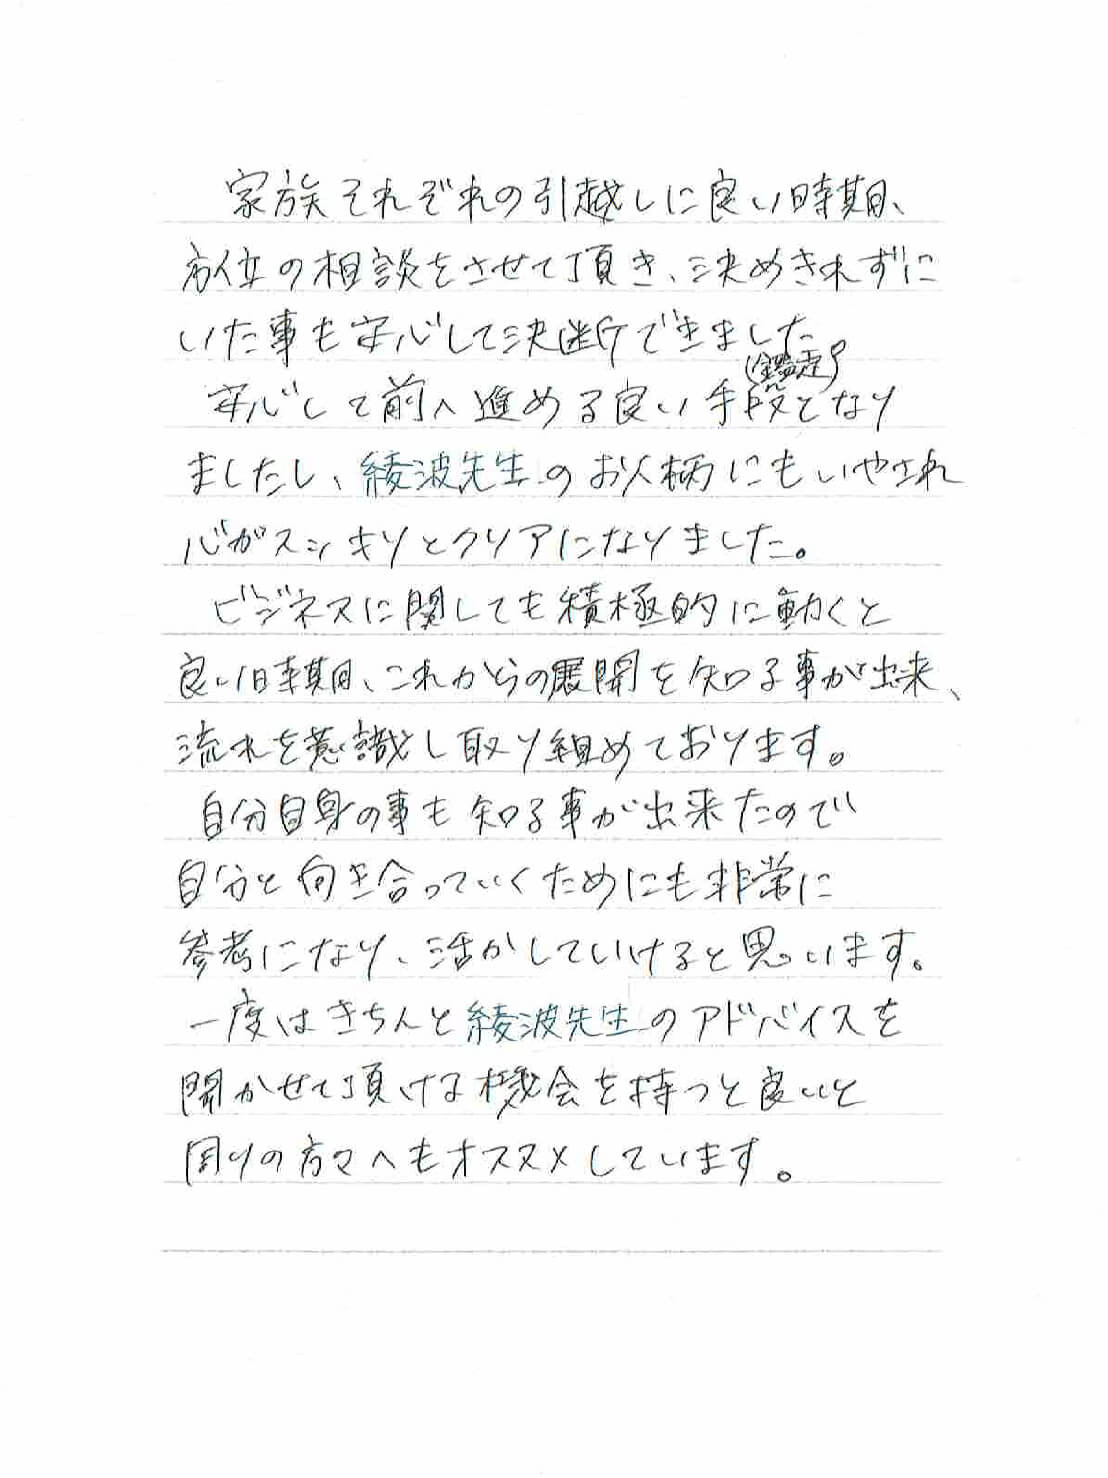 家族それぞれの引越しに良い時期、
方位の相談をさせて頂き、決めきれずに
いた事も安心して決断できました。
(鑑定)
安心して前へ進める良い手段となり
ましたし、綾波先生のお人柄にもいやされ
心がスッキリとクリアになりました。
ビジネスに関しても積極的に動くと
良い時期、これからの展開を知る事が出来、
流れを意識し取り組めております。
自分自身の事も知る事が出来たので
自分と向き合っていくためにも非常に
参考になり、活かしていけると思います。
一度はきちんと綾波先生のアドバイスを
聞かせて頂ける機会を持つと良いと
周りの方々へもオススメしています。